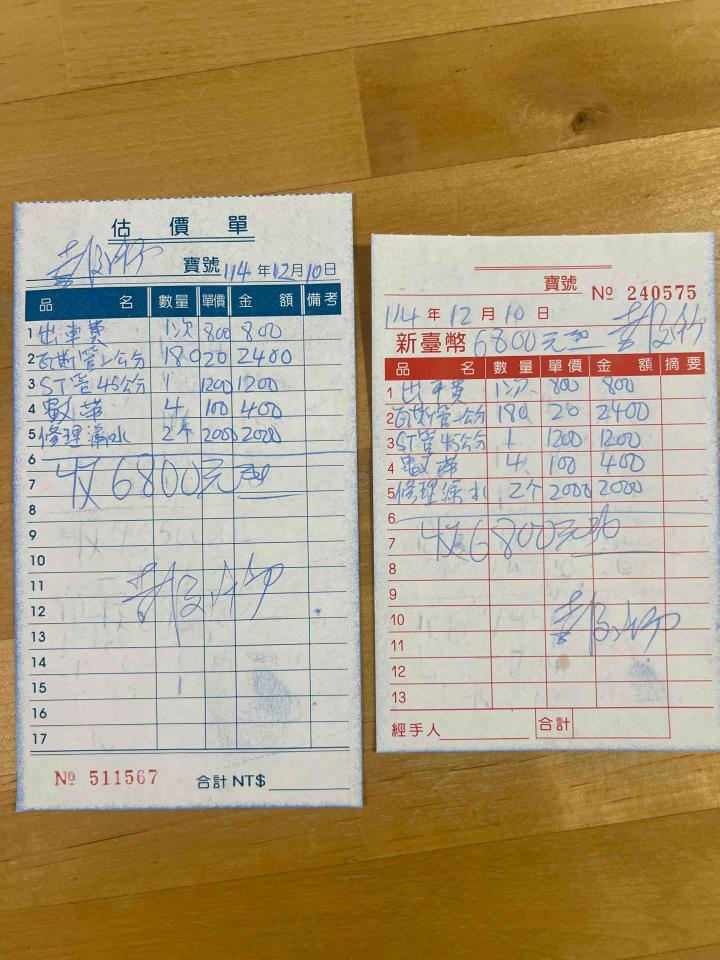 估價單
寶號 114年12月10日
品名 數量 單價 金額 備考
1 出車費 1次 800 800
2 瓦斯管1公分 180 20 2400
3 ST管45公分 1 1200 1200
4 4 100 400
5 修理漏水 2个 2000 2000
6
7 收6800元
8
9
10
11
12
13
14
15
16
17
№ 511567 合計 NT$
寶號 № 240575
114年12月10日
新臺幣 6800元
品名 數量 單價 金額 摘要
1 出車費 1次 800 800
2 瓦斯管1公分 180 20 2400
3 ST管45公分 1 1200 1200
4 4 100 400
5 修理漏水 2个 2000 2000
6
7 收6800元
8
9
10
11
12
13
經手人 合計